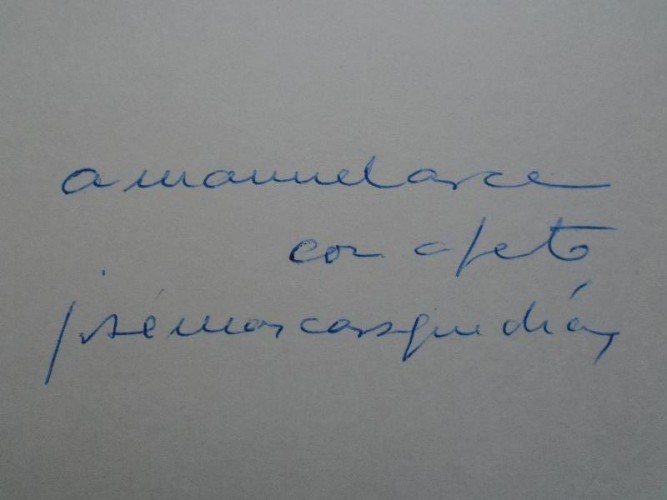 a manuel arce
con afeto
josé mas carsguedián